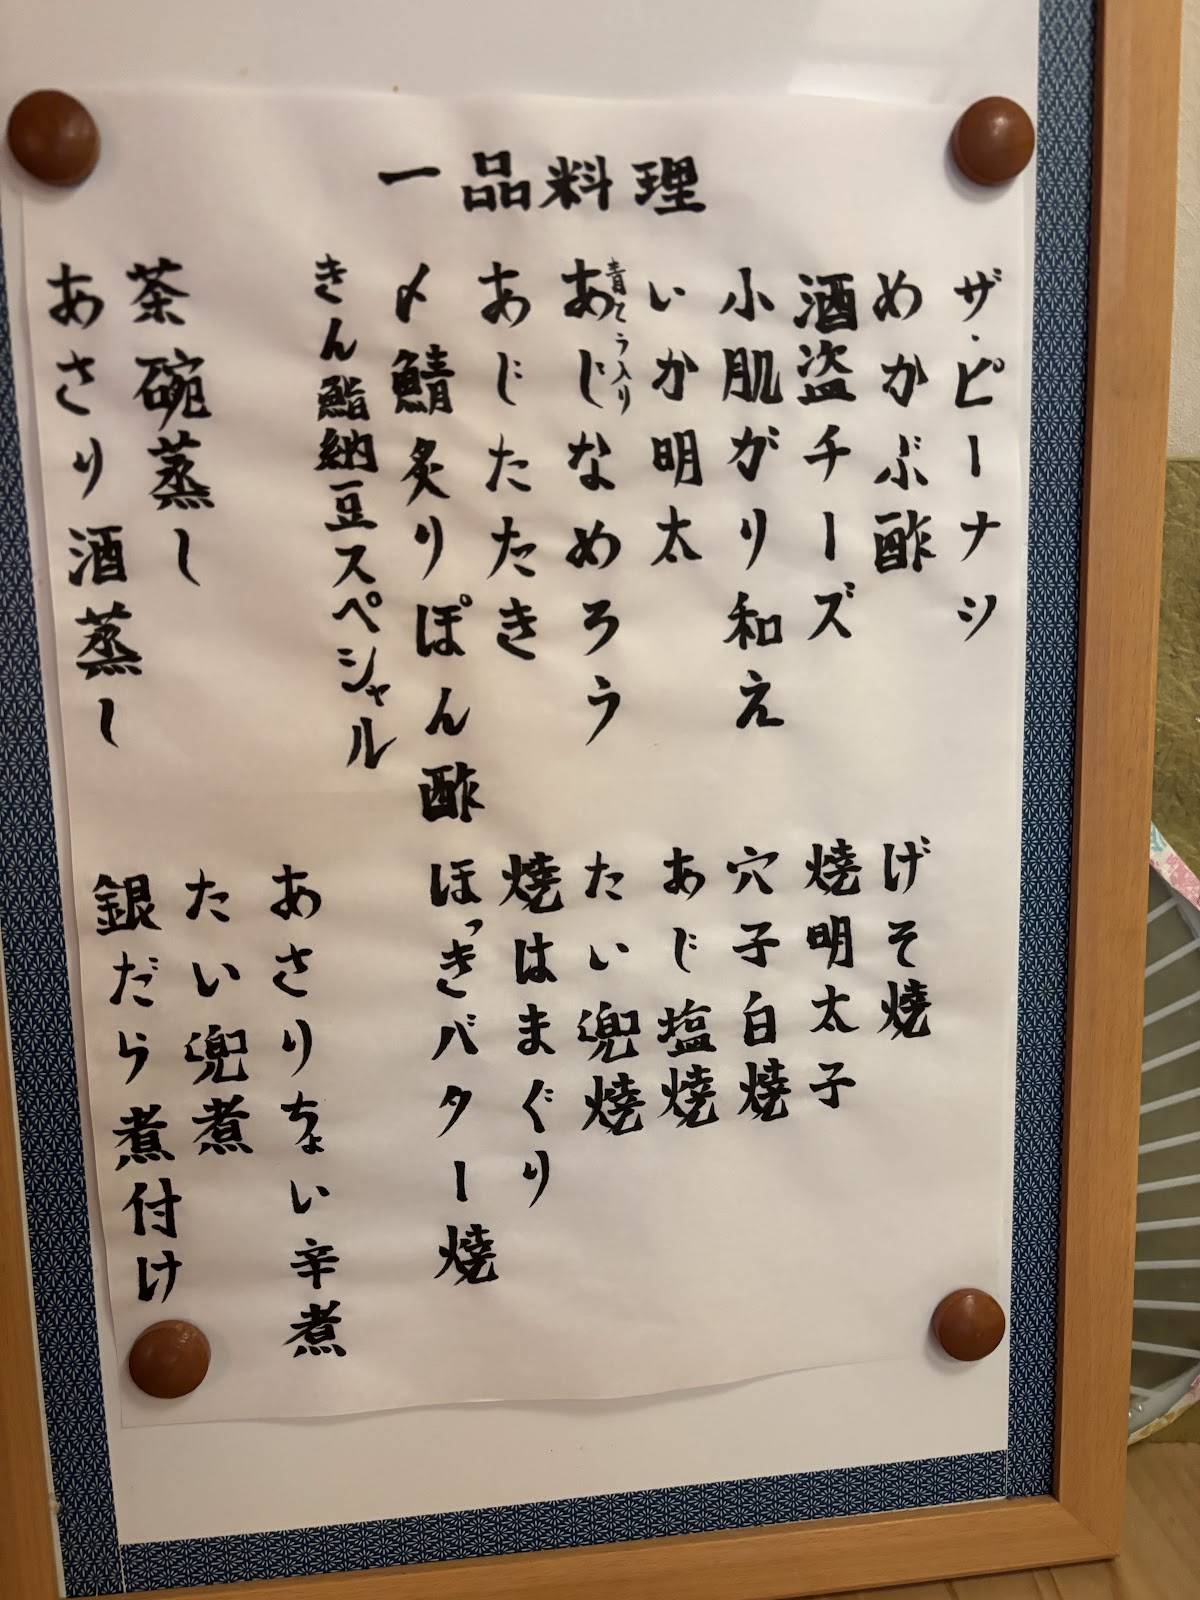 一品料理
ザ・ピーナツ
めかぶ酢
酒盗チーズ
小肌がり和え
いか明太
青とう入り
あじなめろう
あじたたき
〆鯖炙りぽん酢
きん鮨納豆スペシャル
茶碗蒸し
あさり酒蒸し
げそ焼
焼明太子
穴子白焼
あじ塩焼
たい兜焼
焼はまぐり
ほっきバター焼
あさりちょい辛煮
たい兜煮
銀だら煮付け